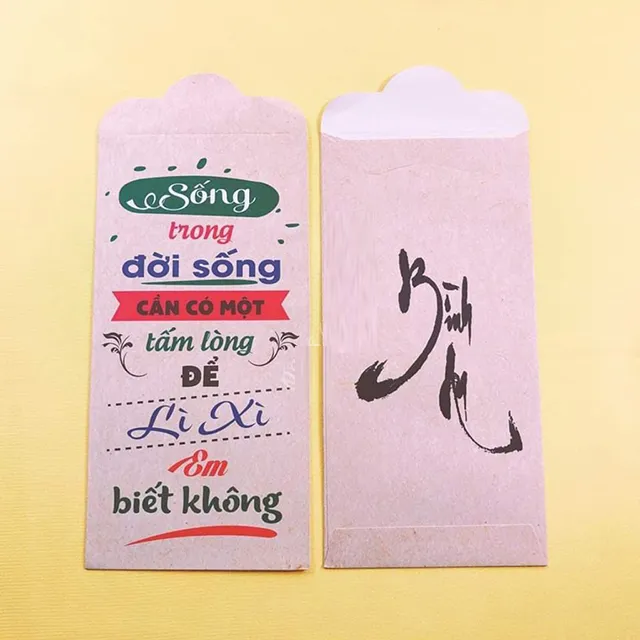 Sống
trong
đời sống
CẦN CÓ MỘT
tấm lòng
ĐỂ
Lì Xì
Em
biết không
Bình